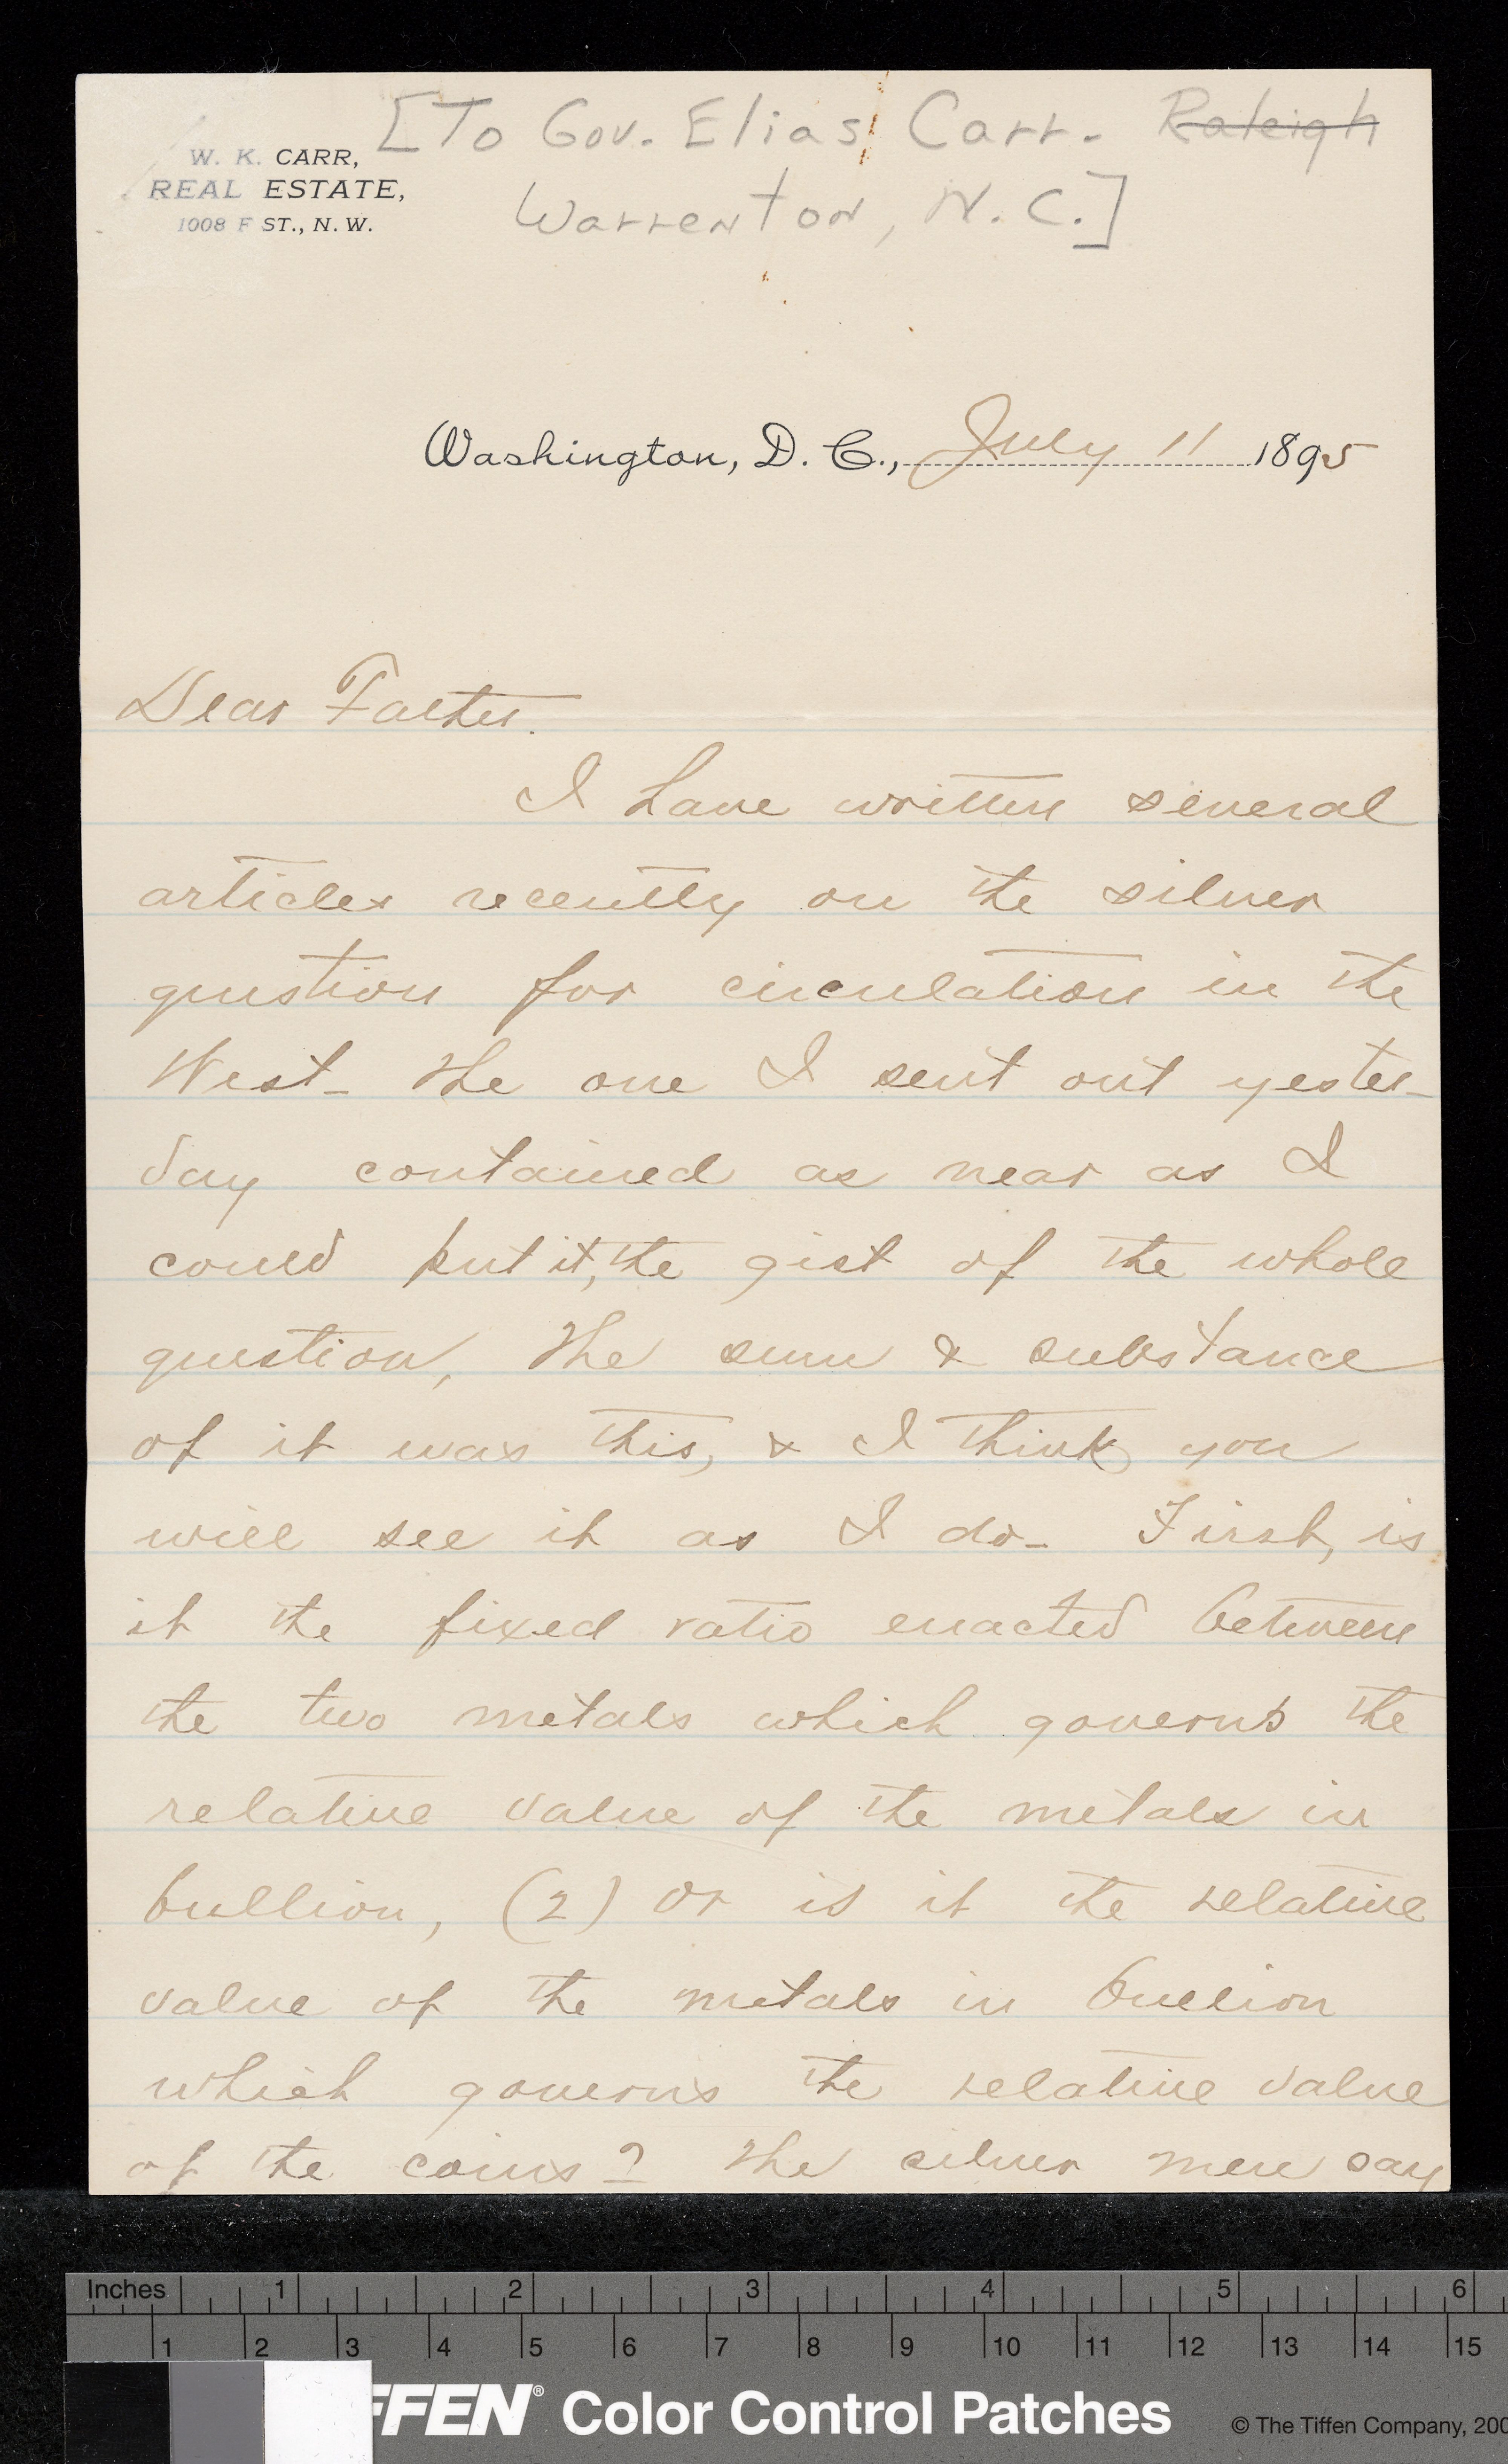 [To Gov. Elias Carr. Raleigh
Warrenton, N.C.]
W. K. CARR,
REAL ESTATE,
1008 F ST., N. W.
Washington, D. C., July 11 1895
Dear Father.
I have written several
articles recently on the silver
question for circulation in the
West_ The one I sent out yester_
day contained as near as I
could put it, the gist of the whole
question, The sum & substance
of it was this, & I think you
will see it as I do_ First, is
it the fixed ratio enacted between
the two metals which governs the
relative value of the metals in
bullion, (2) or is it the relative
value of the metals in bullion
which governs the relative value
of the coins? The silver men say
Inches 1 2 3 4 5 6
1 2 3 4 5 6 7 8 9 10 11 12 13 14 15
FFEN® Color Control Patches
© The Tiffen Company, 200